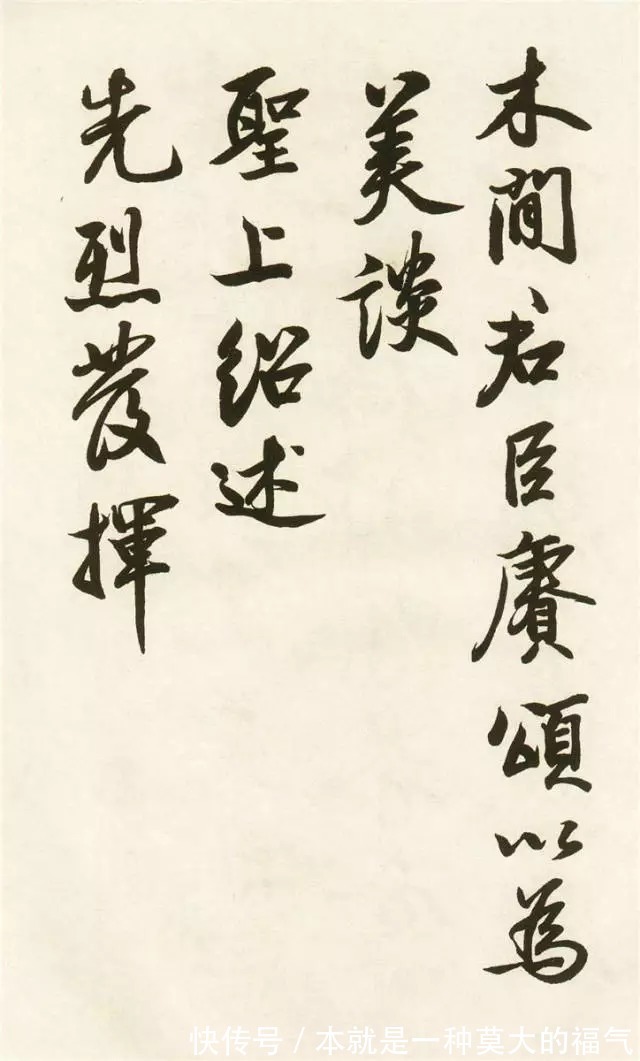 木間君臣賡頌以為
美談
聖上紹述
先烈發揮
快传号/本就是一种莫大的福气